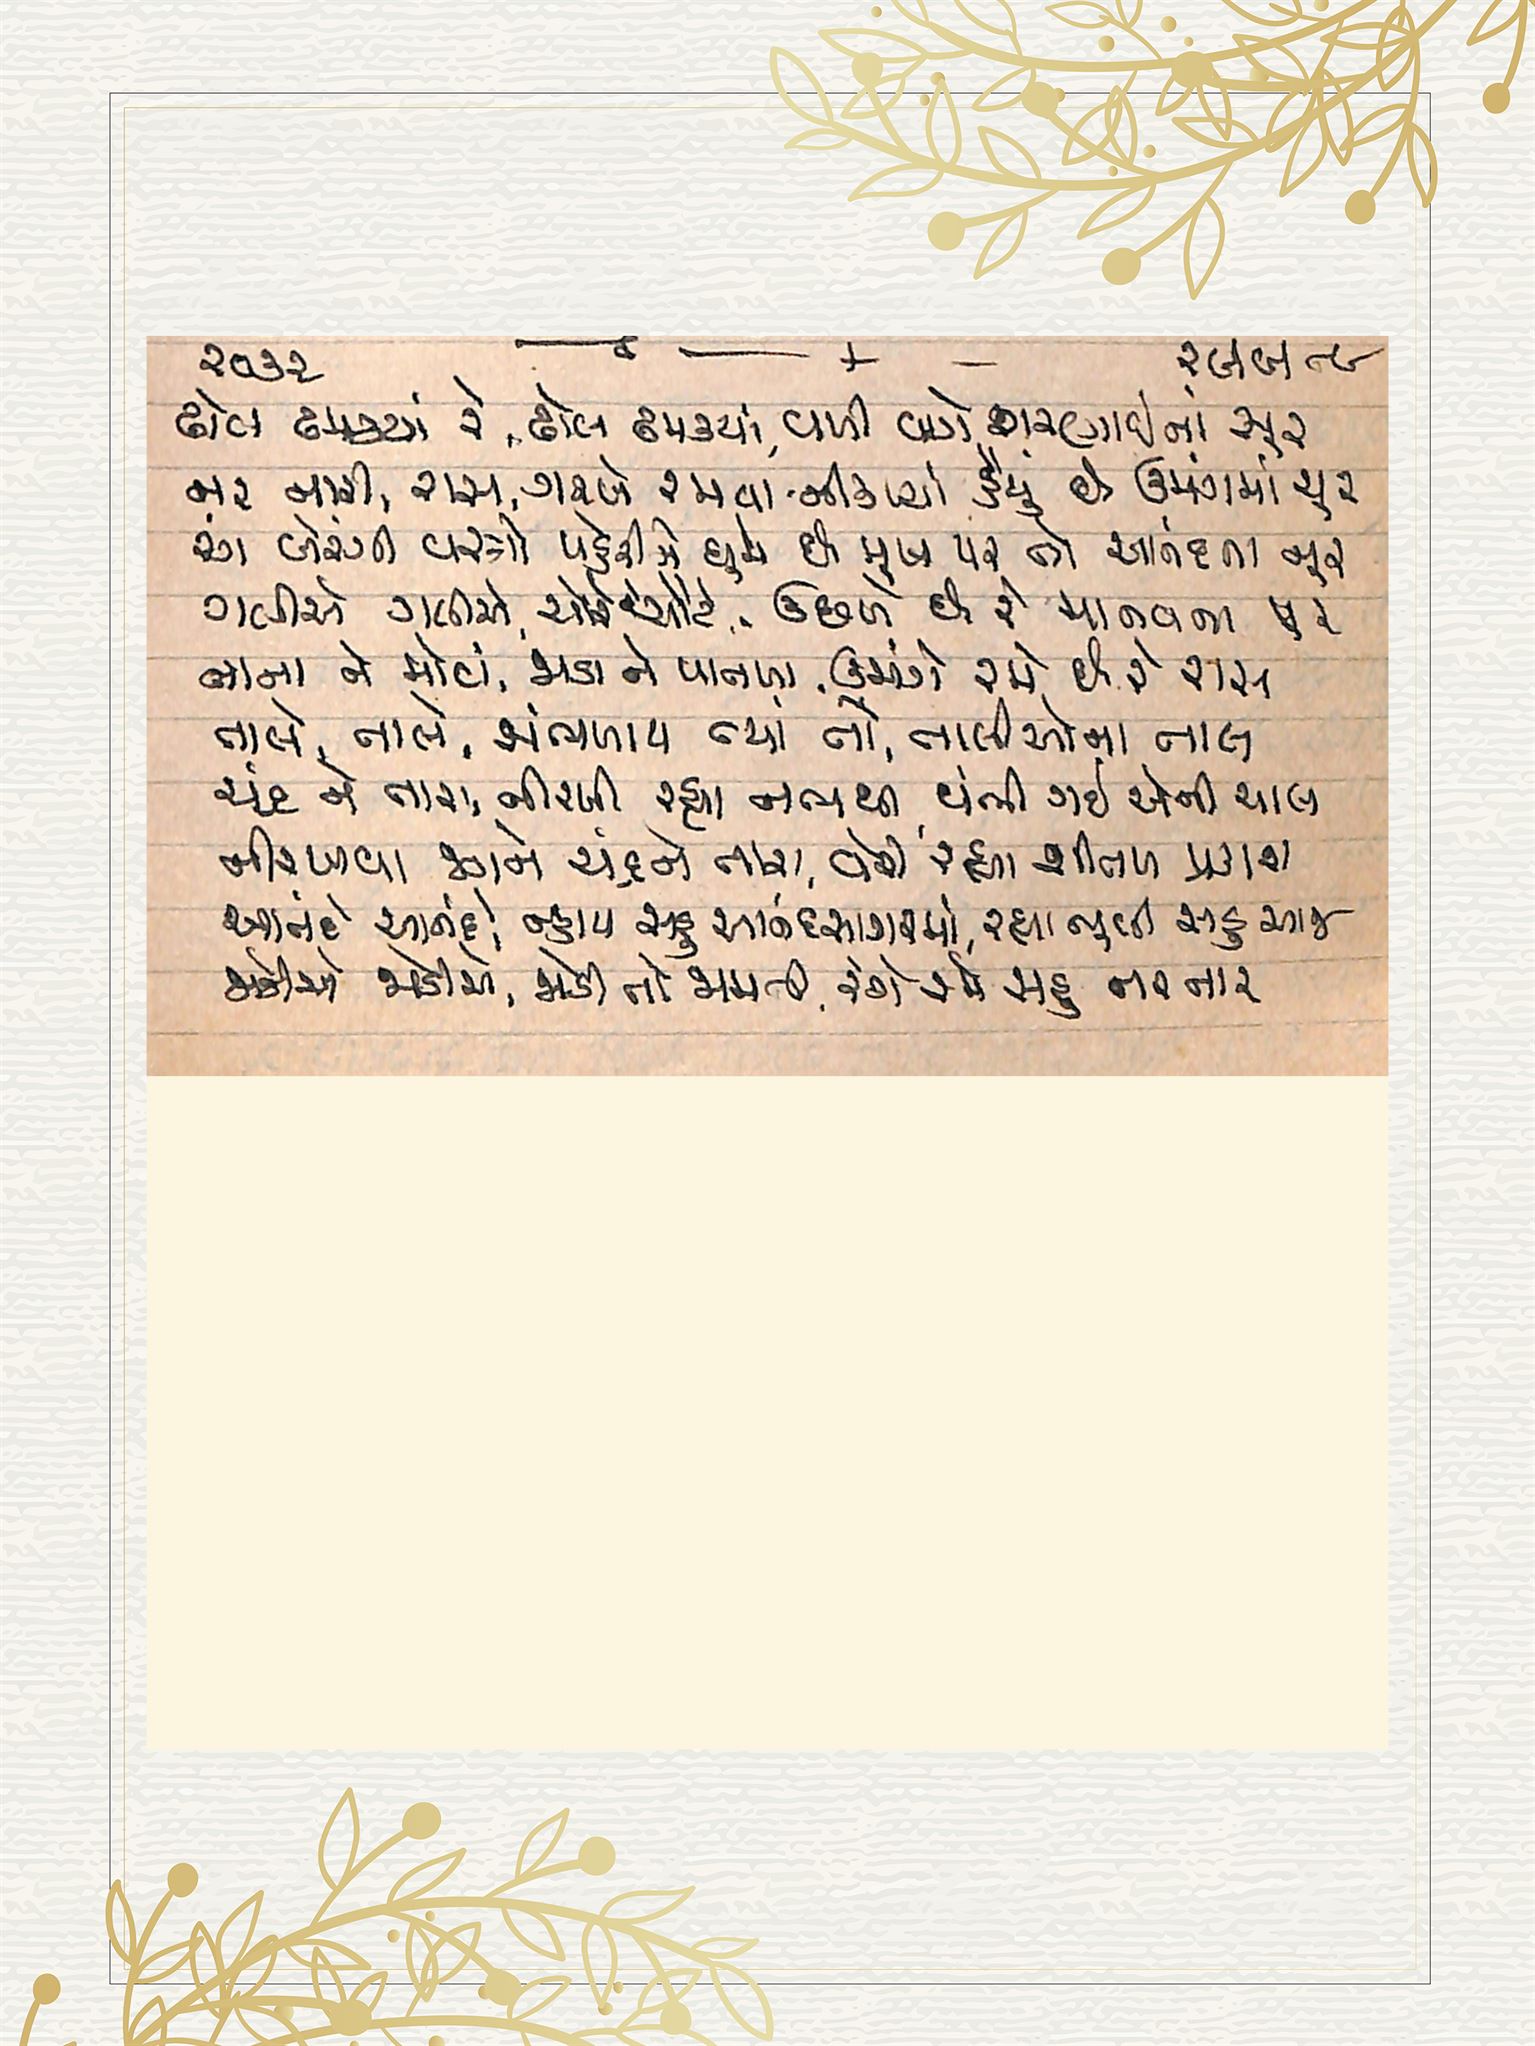 ઢોલ ઢમક્યાં રે, ઢોલ ઢમક્યાં, વળી વાગે શરણાઈનાં સૂર
નર નારી, રાસ, ગરબે રમવા નીકળ્યાં હૈયું છે ઉમંગમાં ચૂર
રંગ બેરંગી વસ્ત્રો પહેરીને ઘુમે છે મુખ પર તો આનંદના નૂર
ગલીએ ગલીએ, ઉછળે છે રે માનવના પુર
નાના ને મોટાં, જાડા ને પાતળા, ઉમંગે રમે છે રે રાસ
તાલે, તાલે, સંભળાય ત્યાં તો, તાલીઓના તાલ
ચંદ્ર ને તારા, નીરખી રહ્યા નભથી, થંભી ગઈ એની ચાલ
નીરખવા ચંદ્રને તારા, વેરી રહ્યા શીતળ પ્રકાશ
આનંદે આનંદે, ન્હાય સહુ આનંદસાગરમાં, રહ્યા ભૂલી સહુ આજ
તો જામતી, રંગે રમે સહુ નર નાર